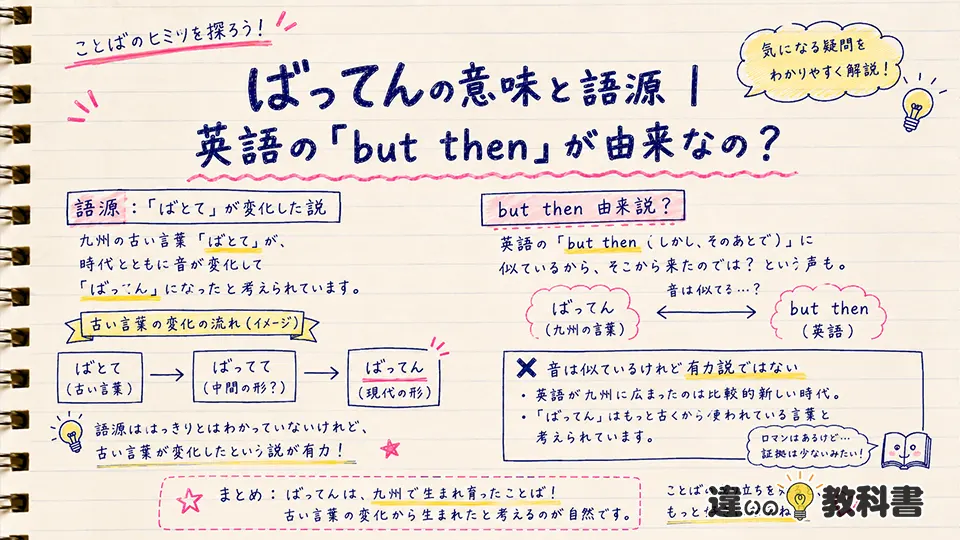 ことばのヒミツを探ろう！
気になる疑問を
わかりやすく解説！
ばってんの意味と語源｜
英語の「but then」が由来なの？
語源：「ばとて」が変化した説
九州の古い言葉「ばとて」が、
時代とともに音が変化して
「ばってん」になったと考えられています。
古い言葉の変化の流れ（イメージ）
ばとて
（古い言葉）
→
ばってて
（中間の形？）
→
ばってん
（現代の形）
語源ははっきりとはわかっていないけれど、
古い言葉が変化したという説が有力！
but then 由来説？
英語の「but then（しかし、そのあとで）」に
似ているから、そこから来たのでは？という声も。
音は似てる…？
ばってん
（九州の言葉）
but then
（英語）
✖ 音は似ているけれど有力説ではない
・英語が九州に広まったのは比較的新しい時代。
・「ばってん」はもっと古くから使われている言葉と
考えられています。
ロマンはあるけど…
証拠は少ないみたい！
まとめ：ばってんは、九州で生まれ育ったことば！
古い言葉の変化から生まれたと考えるのが自然です。
ことば
立ちを
もっと
ね
違いの教科書